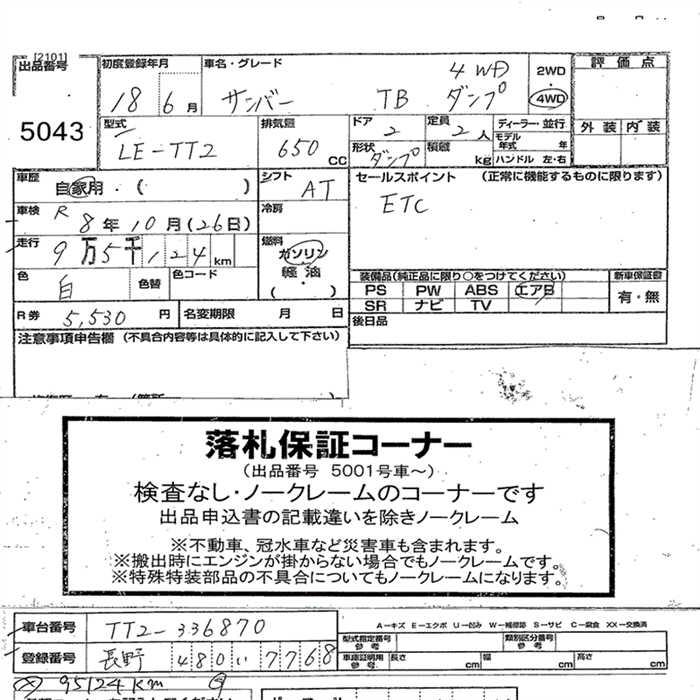 [2101]
出品番号 初度登録年月 車名・グレード 2WD・4WD 評価点
5043 18年 6月 サンバー TB 4WD ダンプ
型式 排気量 ドア 定員 ディーラー・並行 外装 内装
LE-TT2 650 CC 2 2人 モデル年式 年
形状 ダンプ 積載 kg ハンドル 左・右
車歴 自家用・( ) シフト AT セールスポイント (正常に機能するものに限ります)
車検 R8年10月(26日) 冷房 ETC
走行 9万5千124km 燃料 ガソリン・軽油 ( )
色 白 色替 色コード 装備品(純正品に限り○をつけてください) 新車保証書
PS PW ABS エアB 有・無
SR ナビ TV
R券 5,530円 名変期限 月 日 後日品
注意事項申告欄 (不具合内容等は具体的に記入して下さい)
落札保証コーナー
(出品番号 5001号車~)
検査なし・ノークレームのコーナーです
出品申込書の記載違いを除きノークレーム
※不動車、冠水車など災害車も含まれます。
※搬出時にエンジンが掛からない場合でもノークレームです。
※特殊特装部品の不具合についてもノークレームになります。
A-キズ E-エクボ U-凹み W-補修跡 S-サビ C-腐食 XX-交換済
車台番号 TT2-336870 型式指定番号 参考 類別区分番号 参考
登録番号 長野 480 い 7768 車庫証明用 参考 長さ 幅 高さ cm
95124km